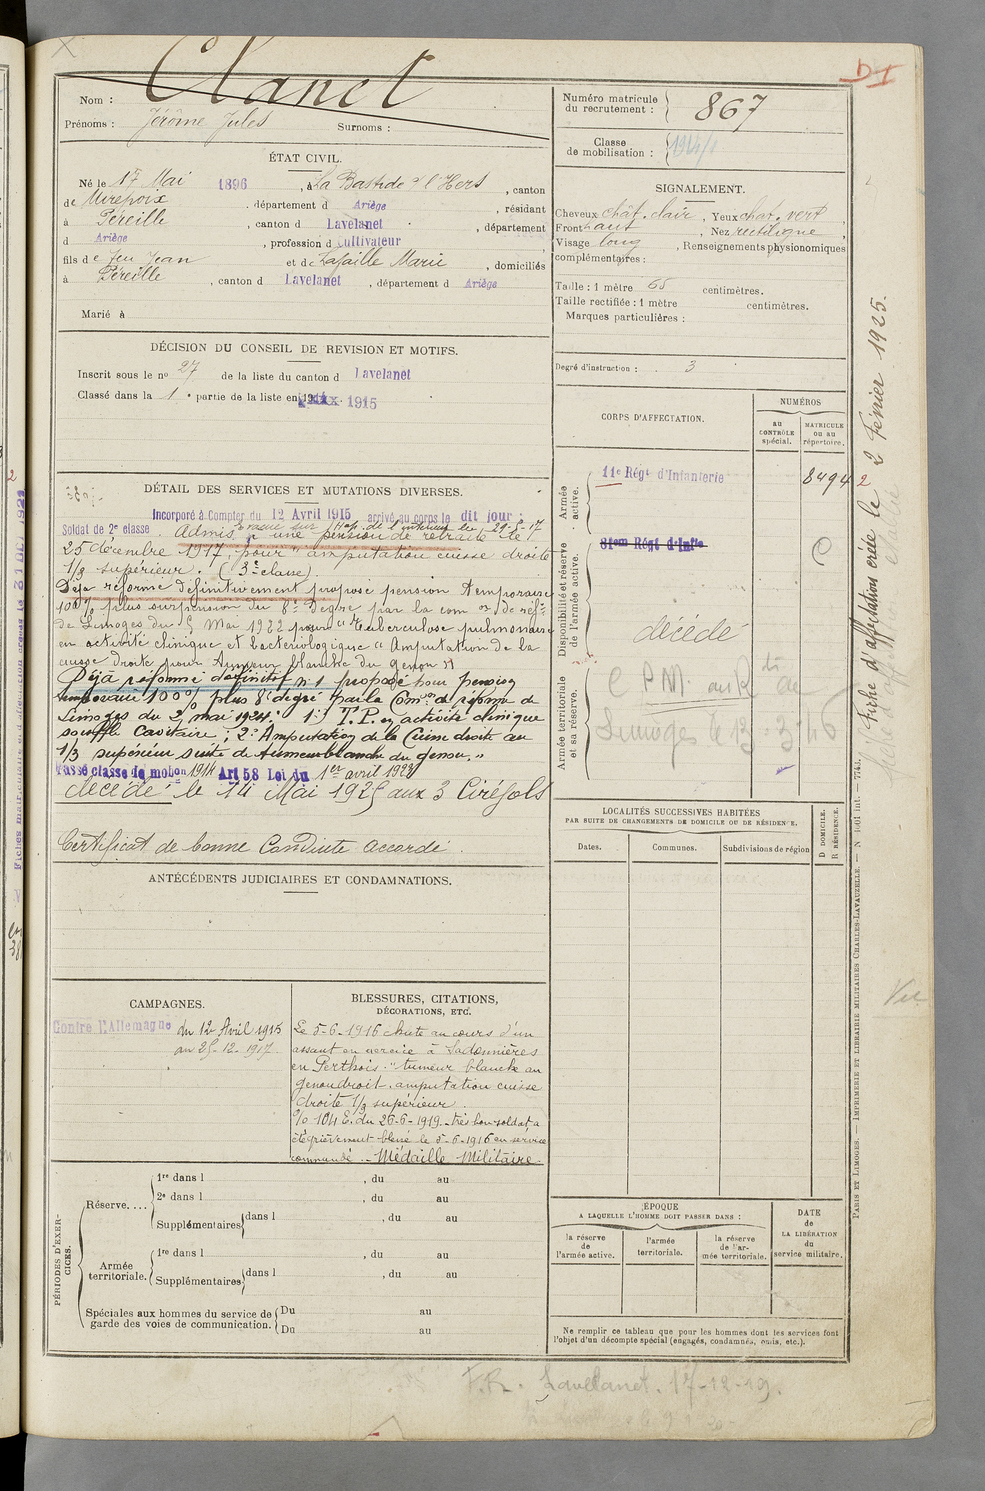 D I
Clanet
Nom :
Prénoms : Jérôme Jules Surnoms :
ÉTAT CIVIL.
Né le 17 Mai 1896, à La Bastide s/ l'Hers, canton
de Mirepoix, département d Ariège, résidant
à Péreille, canton d Lavelanet, département
d Ariège, profession d cultivateur
fils de feu Jean et de Lafaille Marie, domiciliés
à Péreille, canton d Lavelanet, département d Ariège
Marié à
DÉCISION DU CONSEIL DE REVISION ET MOTIFS.
Inscrit sous le no 27 de la liste du canton d Lavelanet
Classé dans la 1e partie de la liste en 1915
DÉTAIL DES SERVICES ET MUTATIONS DIVERSES.
Incorporé à Compter du 12 Avril 1915 arrivé au corps le dit jour ;
Soldat de 2e classe. Admis à une pension de retraite le
25 décembre 1917, pour "amputation cuisse droite
1/3 supérieur. (3e classe)
Déja réformé définitivement proposé pension temporaire
100% plus surpension du 8e Degré par la com on de réf me
de Limoges du 5 Mai 1922 pour "tuberculose pulmonaire
en activité clinique et bactériologique "Amputation de la
cuisse droite pour tumeur blanche du genou"
Déjà réformé définitif n°1 proposé pour pension
temporaire 100% plus 8e degré par la Com on de réforme de
Limoges du 2 mai 1924 : 1° T.P. en activité clinique
souffle cavitaire ; 2° Amputation de la Cuisse droite au
1/3 supérieur suite de tumeur blanche du genou."
Passé classe de mobon 1914 Art 58 Loi du 1er avril 1923
décédé le 14 Mai 1925 aux
Certificat de bonne Conduite accordé
ANTÉCÉDENTS JUDICIAIRES ET CONDAMNATIONS.
CAMPAGNES.
Contre l'Allemagne du 12 Avril 1915
au 25-12-1917
BLESSURES, CITATIONS,
DÉCORATIONS, ETC.
Le 5-6-1916 chute au cours d'un
assaut en service à
en Perthois. "tumeur blanche au
genou droit. amputation cuisse
droite 1/3 supérieur.
104 E. du 26-6-1919. très bon soldat a
été grièvement blessé le 5-6-1916 en service
commandé. - Médaille Militaire -
PÉRIODES D'EXERCICES.
Réserve....
1re dans l , du au
2e dans l , du au
Supplémentaires dans l , du au
Armée territoriale.
1re dans l , du au
Supplémentaires dans l , du au
Spéciales aux hommes du service de garde des voies de communication.
Du au
Du au
Numéro matricule
du recrutement : 867
Classe
de mobilisation : 1914
SIGNALEMENT.
Cheveux chât. clair, Yeux chat. vert,
Front haut, Nez rectiligne,
Visage long, Renseignements physionomiques
complémentaires :
Taille : 1 mètre 65 centimètres.
Taille rectifiée : 1 mètre centimètres.
Marques particulières :
Degré d'instruction : 3
CORPS D'AFFECTATION.
NUMÉROS
au
CONTRÔLE
spécial.
MATRICULE
ou au
répertoire.
Armée
active.
11e Régt d'Infanterie 8494
Disponibilité et réserve
de l'armée active.
81em Régt d'Infie
décédé
Armée territoriale
et sa réserve.
C P.M. au Rdt de
Limoges le 13-3-46
LOCALITÉS SUCCESSIVES HABITÉES
PAR SUITE DE CHANGEMENTS DE DOMICILE OU DE RÉSIDENCE.
Dates. Communes. Subdivisions de région
D DOMICILE.
R RÉSIDENCE.
ÉPOQUE
A LAQUELLE L'HOMME DOIT PASSER DANS :
la réserve
de
l'armée active.
l'armée
territoriale.
la réserve
de l'armée territoriale.
DATE
de
LA LIBÉRATION
du
service militaire.
Ne remplir ce tableau que pour les hommes dont les services font
l'objet d'un décompte spécial (engagés, condamnés, omis, etc.).
Fiche d'affectation créée le 2 Février 1925.
PARIS ET LIMOGES. — IMPRIMERIE ET LIBRAIRIE MILITAIRES CHARLES-LAVAUZELLE.
Vu
F.R. Lavelanet. 17-12-19.